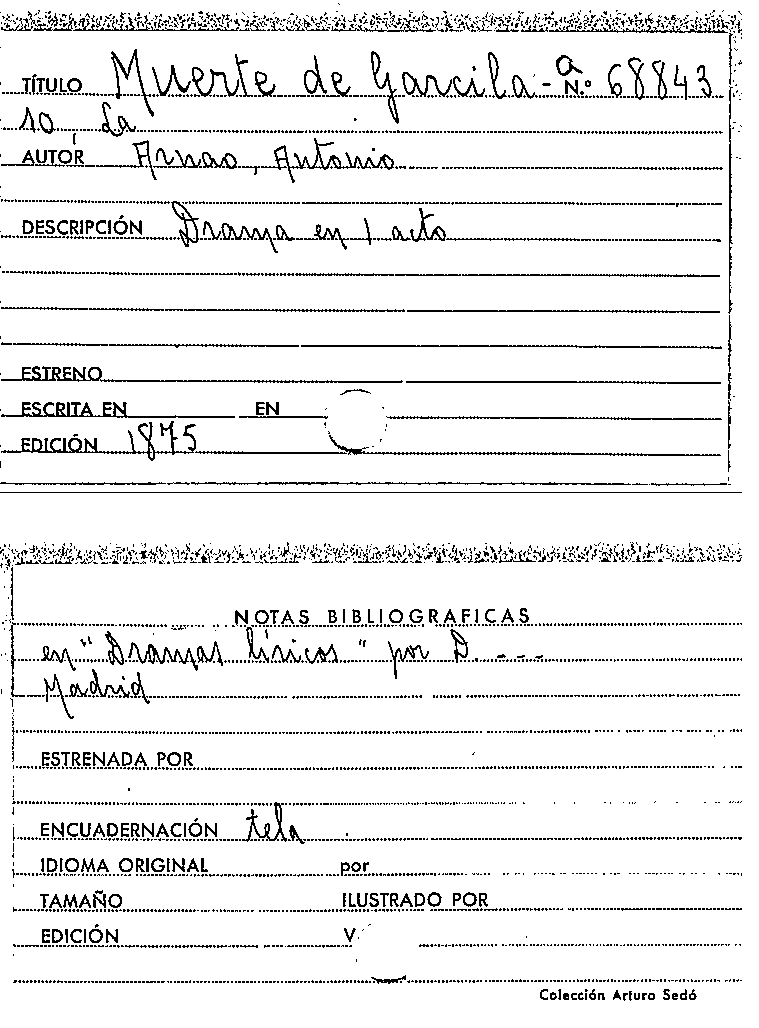 TÍTULO Muerte de Garcila- a N.º 68843
so, La
AUTOR Arnao, Antonio
DESCRIPCIÓN Drama en 1 acto
ESTRENO
ESCRITA EN EN
EDICIÓN 1875
NOTAS BIBLIOGRAFICAS
en "Dramas líricos" por D. ---
Madrid
ESTRENADA POR
ENCUADERNACIÓN tela
IDIOMA ORIGINAL por
TAMAÑO ILUSTRADO POR
EDICIÓN V
Colección Arturo Sedó